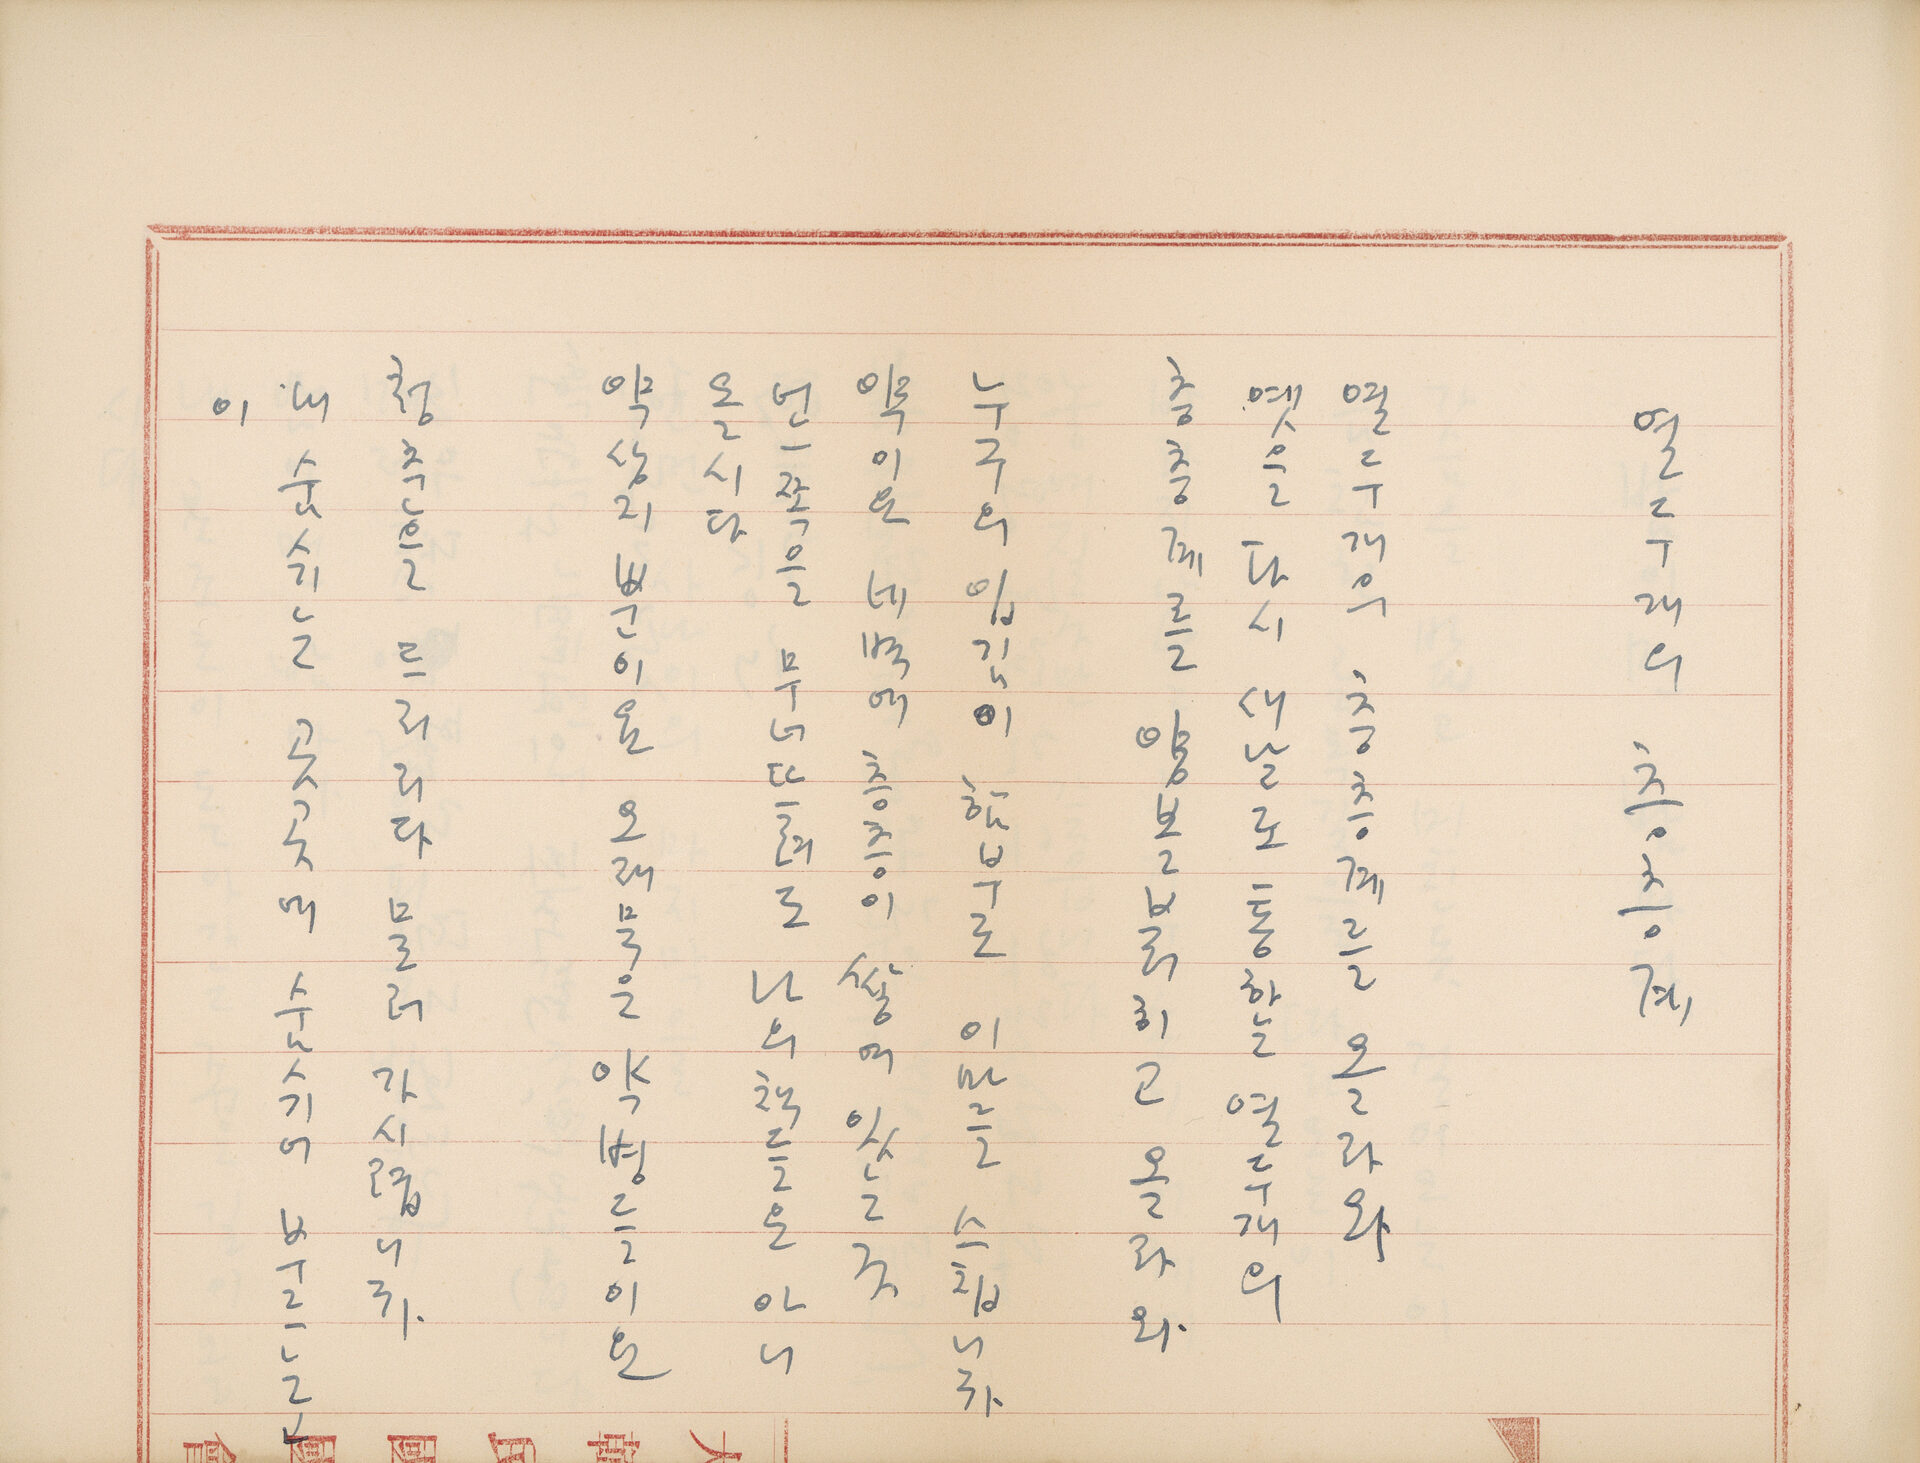 열두개의 층층계
열두개의 층층계를 올라와
옛을 다시 새날로 통하는 열두개의
층층계를 양볼 붉히고 올라와.
누구의 입김이 함부로 이마를 스칩니까
약이오 네벽에 층층이 쌓여 있는 것
어느쪽을 무너뜨려도 나의 책들은 아니
올시다
약상자뿐이오 오래 묵은 약병들이오
청춘을 드리리다 물러 가시렵니까.
내 숨쉬는 곳곳에 숨쉬어 부르는
이
大韓民國國會